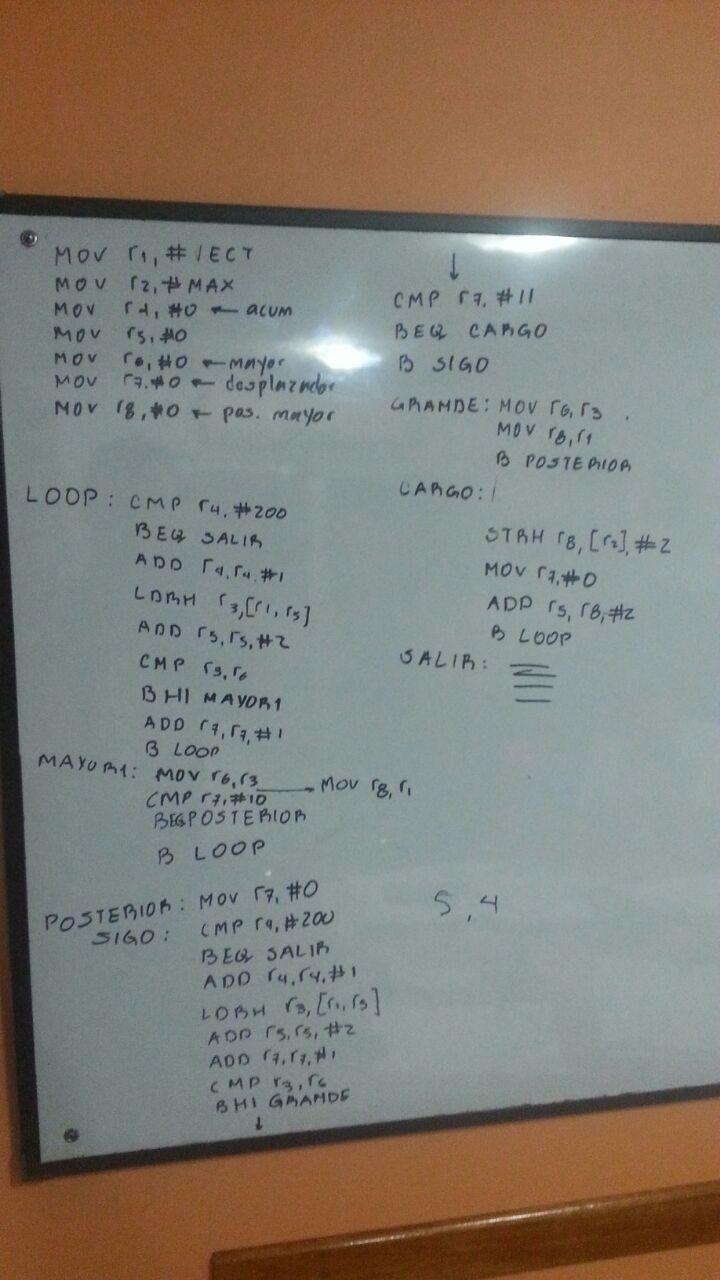 MOV r1, #VECT
MOV r2, #MAX
MOV r4, #0 ← acum
MOV r5, #0
MOV r6, #0 ← mayor
MOV r7, #0 ← desplazador
MOV r8, #0 ← pos. mayor
LOOP: CMP r4, #200
BEQ SALIR
ADD r4, r4, #1
LDRH r3, [r1, r5]
ADD r5, r5, #2
CMP r3, r6
BHI MAYOR1
ADD r7, r7, #1
B LOOP
MAYOR1: MOV r6, r3 → MOV r8, r1
CMP r7, #10
BEQ POSTERIOR
B LOOP
POSTERIOR: MOV r7, #0
SIGO: CMP r4, #200
BEQ SALIR
ADD r4, r4, #1
LDRH r3, [r1, r5]
ADD r5, r5, #2
ADD r7, r7, #1
CMP r3, r6
BHI GRANDE
↓
↓
CMP r7, #11
BEQ CARGO
B SIGO
GRANDE: MOV r6, r3
MOV r8, r1
B POSTERIOR
CARGO:
STRH r8, [r2], #2
MOV r7, #0
ADD r5, r8, #2
B LOOP
SALIR:
5, 4